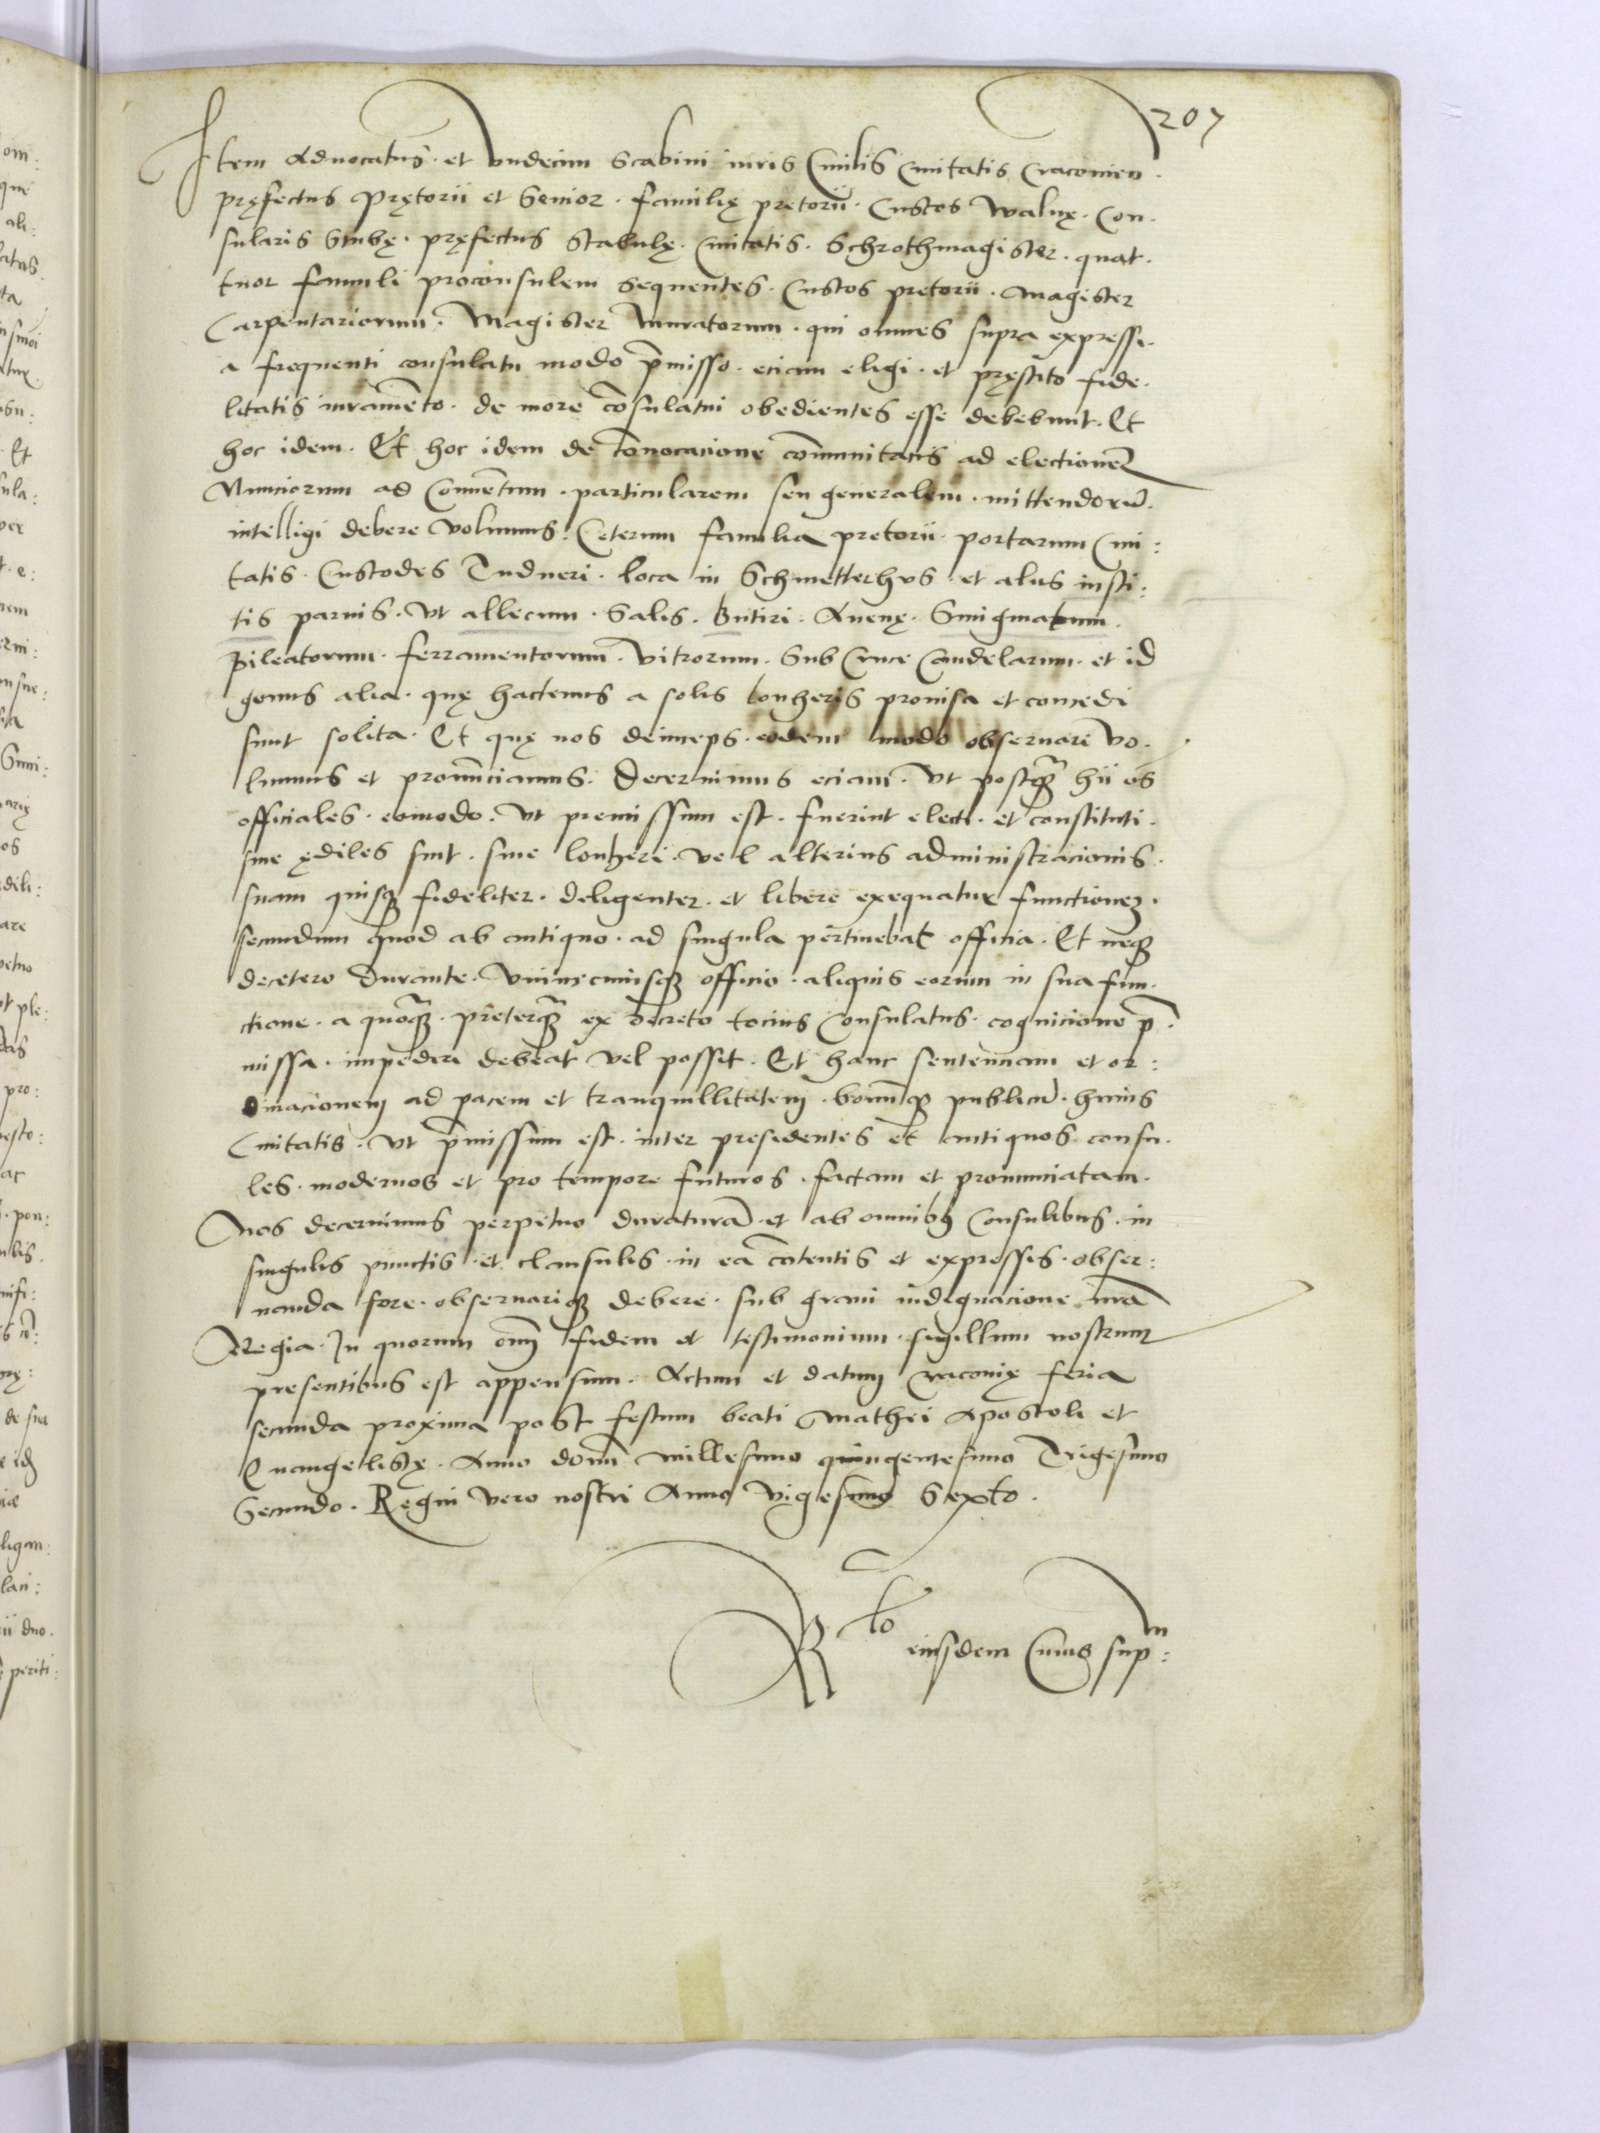 207
Item Aduocatus · et Vndecim Scabini iuris Ciuilis Ciuitatis Cracouien ·
pręfectus Prętorii et Senior · familię pretorii · Custos Waluę · Con ·
sularis Stubę · pręfectus Stabulę · Ciuitatis · Schrothmagister · quat ·
tuor famuli proconsulem sequentes · Custos pretorii · Magister
Carpentariorum · Magister Muratorum · qui omnes supra expressi ·
a frequenti consulatu modo p̄misso · eciam eligi · et pręstito fide ·
litatis iuramēto · de more cōsulatui obedientes esse debebunt · Et
hoc idem · Et hoc idem de conuocacione cōmunitatis ad electionem
Nunciorum ad Conuētum · particularem seu generalem · mittendorū ·
intelligi debere volumus · Ceterum familia pretorii · portarum Ciui :
tatis · Custodes Tudneri · loca in Schmetterhvs · et aliis insti :
tis paruis · Vt allecum · Salis · Butiri · Auenę · Smigmatum ·
Pileatorum · ferramentorum · Vitrorum · Sub Cruce Candelarum · et id
genus alia · quę hactenus a solis lonheris prouisa et concedi
sunt solita · Et quę nos deinceps · eodem modo obseruari vo ·
lumus et pronūciamus · Decernimus eciam · Vt postq̄ȝ hii oēs
officiales · eomodo · Vt premissum est · fuerint electi · et constituti ·
siue ędiles sint · siue lonheri · vel alterius administracionis ·
suam quisq̨ fideliter · deligenter · et libere exequatur functionem ·
secundum quod ab antiquo · ad singula pertinebat officia · Et neq̨
decetero durante · Vniuscuiusq̨ officio · aliquis eorum in sua fun ·
ctione · a quoq̄ȝ · preterq̄ȝ ex decreto tocius Consulatus · cognicione p̄ ·
missa · impediri debeat vel possit · Et hanc sentenciam et or :
dinacionem ad pacem et tranquillitatem · bonūq̨ publicū · huius
Ciuitatis · Vt p̄missum est · inter presidentes et antiquos · consu ·
les · modernos et pro tempore futuros · factam et pronunciatam ·
Nos decernimus perpetuo duraturā · et ab omnibꝫ Consulibus · in
singulis punctis · et clausulis · in ea cōtentis et expressis · obser :
uanda fore · obseruariq̨ debere · sub graui indignacione nr̄a
Regia · In quorum om̄ fidem et testimonium · sigillum nostrum
presentibus est appensum · Actum et datum Cracouię feria
secunda proxima post festum beati Mathei Apostoli et
Euangelistę · Anno domī millesimo quingentesimo Trigesimo
Secundo · Regni vero nostri Anno vigesimo Sexto ·
Rlo eiusdem Cuius sup :